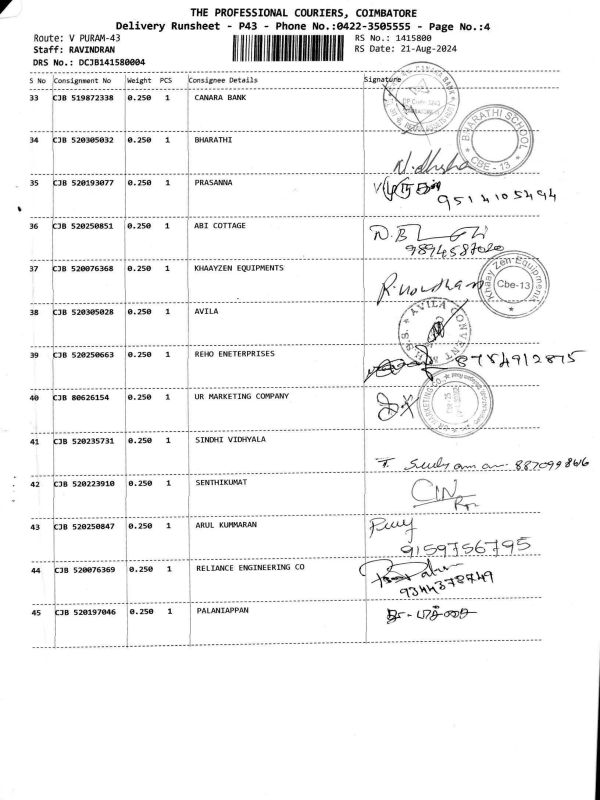 THE PROFESSIONAL COURIERS, COIMBATORE
Delivery Runsheet - P43 - Phone No.:0422-3505555 - Page No.:4
Route: V PURAM-43 RS No.: 1415800
Staff: RAVINDRAN RS Date: 21-Aug-2024
DRS No.: DCJB141580004
S No Consignment No Weight PCS Consignee Details Signature
33 CJB 519872338 0.250 1 CANARA BANK
CANARA BANK
34 CJB 520305032 0.250 1 BHARATHI
BHARATHI SCHOOL
CBE-13
35 CJB 520193077 0.250 1 PRASANNA
9514105494
36 CJB 520250851 0.250 1 ABI COTTAGE
37 CJB 520076368 0.250 1 KHAAYZEN EQUIPMENTS
Khaay Zen Equipments
Cbe-13
38 CJB 520305028 0.250 1 AVILA
AVILA CONVENT
39 CJB 520250663 0.250 1 REHO ENETERPRISES
8754912875
40 CJB 80626154 0.250 1 UR MARKETING COMPANY
UR MARKETING CO.
41 CJB 520235731 0.250 1 SINDHI VIDHYALA
42 CJB 520223910 0.250 1 SENTHIKUMAT
43 CJB 520250847 0.250 1 ARUL KUMMARAN
9159756795
44 CJB 520076369 0.250 1 RELIANCE ENGINEERING CO
9344378749
45 CJB 520197046 0.250 1 PALANIAPPAN